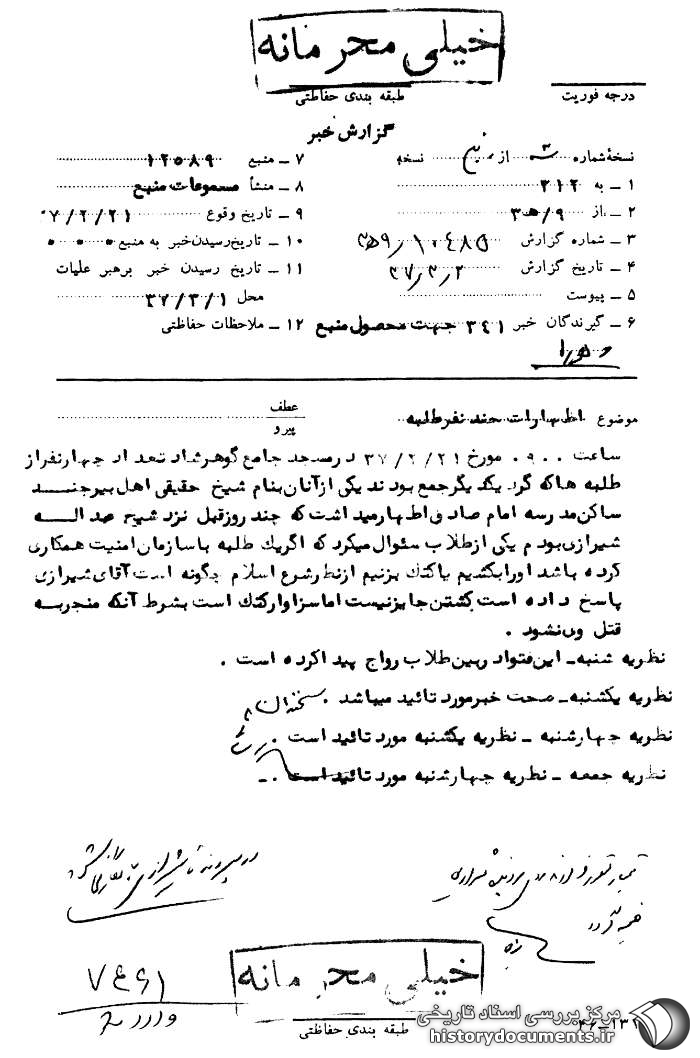 خیلی محرمانه
درجه فوریت
طبقه بندی حفاظتی
گزارش خبر
نسخهٔ شماره ۳ از پنج نسخه
۱ ـ به ۳۱۲
۲ ـ از ۹/ه۳
۳ ـ شماره گزارش
۴ ـ تاریخ گزارش ۳۷/۳/۲
۵ ـ پیوست
۶ ـ گیرندگان خبر ۳۴۱ جهت محصول منبع
۷ ـ منبع ۱۲۵۸۹
۸ ـ منشأ مسموعات منبع
۹ ـ تاریخ وقوع ۳۷/۲/۲۱
۱۰ ـ تاریخ رسیدن خبر به منبع
۱۱ ـ تاریخ رسیدن خبر برهبر عملیات
محل ۳۷/۳/۱
۱۲ ـ ملاحظات حفاظتی
موضوع اظهارات چند نفر طلبه
عطف
پیرو
ساعت ۰۹۰۰ مورخ ۳۷/۲/۲۱ در مسجد جامع گوهرشاد تعداد چهارنفر از
طلبه ها که گرد یکدیگر جمع بودند یکی از آنان بنام شیخ حقیقی اهل بیرجند
ساکن مدرسه امام صادق اظهار میداشت که چند روز قبل نزد شیخ عبداله
شیرازی بودم یکی از طلاب سئوال میکرد که اگر یک طلبه با سازمان امنیت همکاری
کرده باشد اورا بکشیم یا کتک بزنیم از نظر شرع اسلام چگونه است آقای شیرازی
پاسخ داده است کشتن جایز نیست اما سزاوار کتک است بشرط آنکه منجر به
قتل وی نشود .
نظریه شنبه ـ این فتوا در بین طلاب رواج پیدا کرده است .
نظریه یکشنبه ـ صحت خبر مورد تائید میباشد . سخندان
نظریه چهارشنبه ـ نظریه یکشنبه مورد تائید است .
نظریه جمعه ـ نظریه چهارشنبه مورد تائید است . ـ
خیلی محرمانه
طبقه بندی حفاظتی
مرکز بررسی اسناد تاریخی
historydocuments.ir